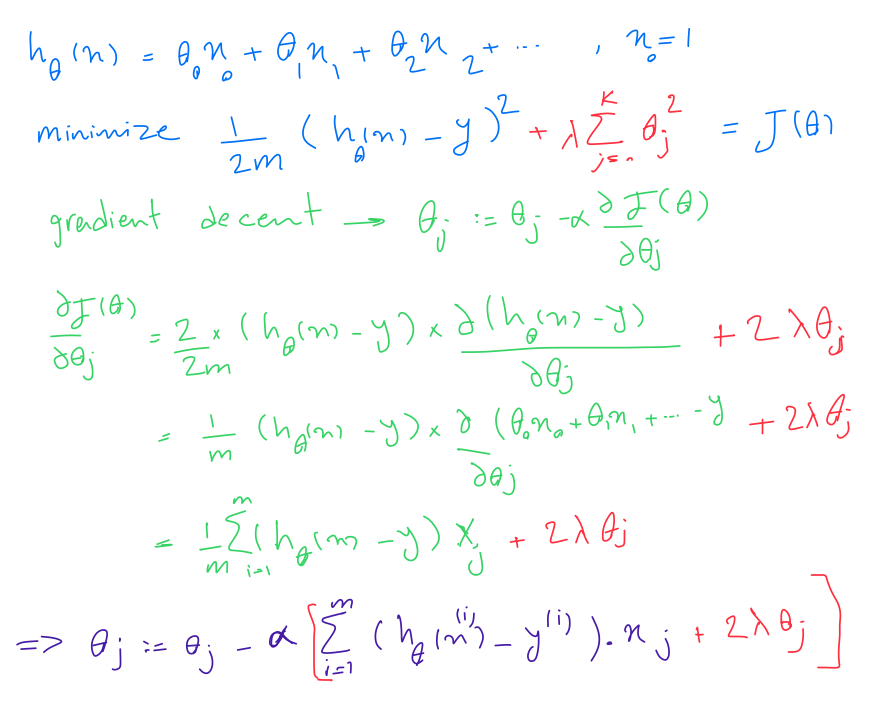 h_θ(x) = θ₀x₀ + θ₁x₁ + θ₂x₂ + ... , x₀ = 1
minimize 1/2m (h_θ(x) - y)² + λ∑_{j=0}^{K} θ_j² = J(θ)
gradient decent → θ_j := θ_j - α ∂J(θ)/∂θ_j
∂J(θ)/∂θ_j = 2/2m × (h_θ(x) - y) × ∂(h_θ(x) - y)/∂θ_j + 2λθ_j
= 1/m (h_θ(x) - y) × ∂/∂θ_j (θ₀x₀ + θ₁x₁ + ... - y + 2λθ_j
= 1/m ∑_{i=1}^{m} (h_θ(x) - y) x_j + 2λθ_j
=> θ_j := θ_j - α [∑_{i=1}^{m} (h_θ(x^{(i)}) - y^{(i)}). x_j + 2λθ_j]